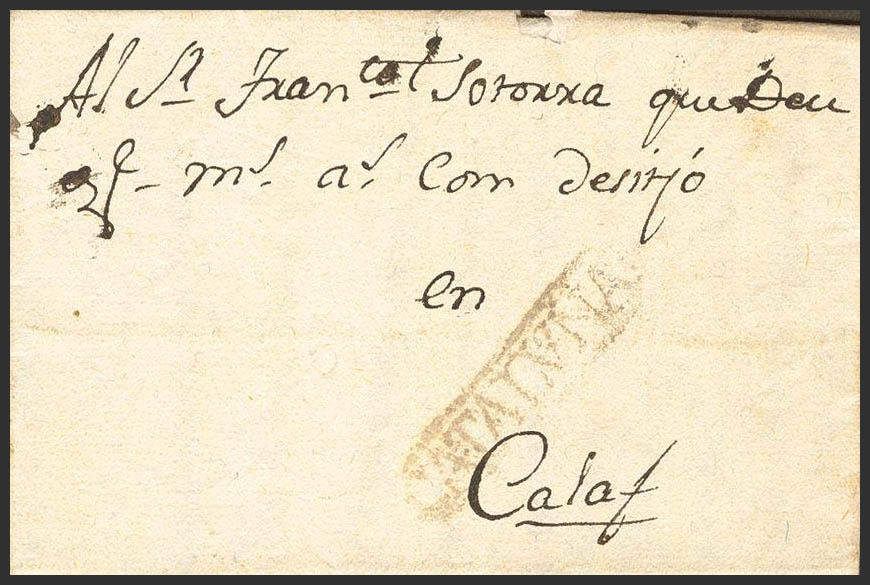 Al Sr. Fran.co Sotorra que Deu
gf - ms. as. Com desitjó
en
CATALVÑA
Calaf